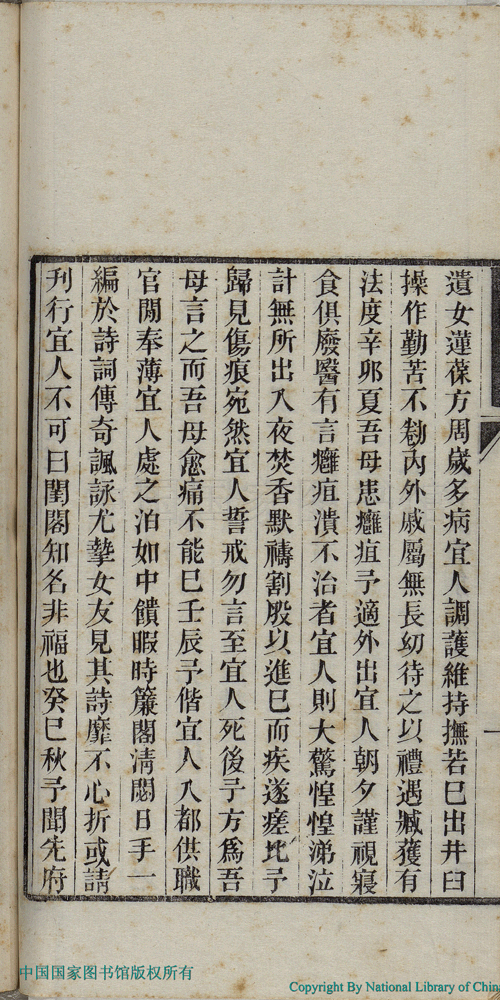 遺女蓮葆方周歲多病宜人調護維持撫若已出井臼
操作勤苦不勌內外戚屬無長幼待之以禮遇臧獲有
法度辛卯夏吾母患癰疽予適外出宜人朝夕謹視寢
食俱廢醫有言癰疽潰不治者宜人則大驚惶惶涕泣
計無所出入夜焚香默禱割股以進已而疾遂瘥比予
歸見傷痕宛然宜人誓戒勿言至宜人死後予方爲吾
母言之而吾母愈痛不能已壬辰予偕宜人入都供職
官閒奉薄宜人處之泊如中饋暇時簾閣清閟日手一
編於詩詞傳奇諷詠尤摯女友見其詩靡不心折或請
刊行宜人不可曰閨閣知名非福也癸巳秋予聞先府
中国国家图书馆版权所有
Copyright By National Library of Chin